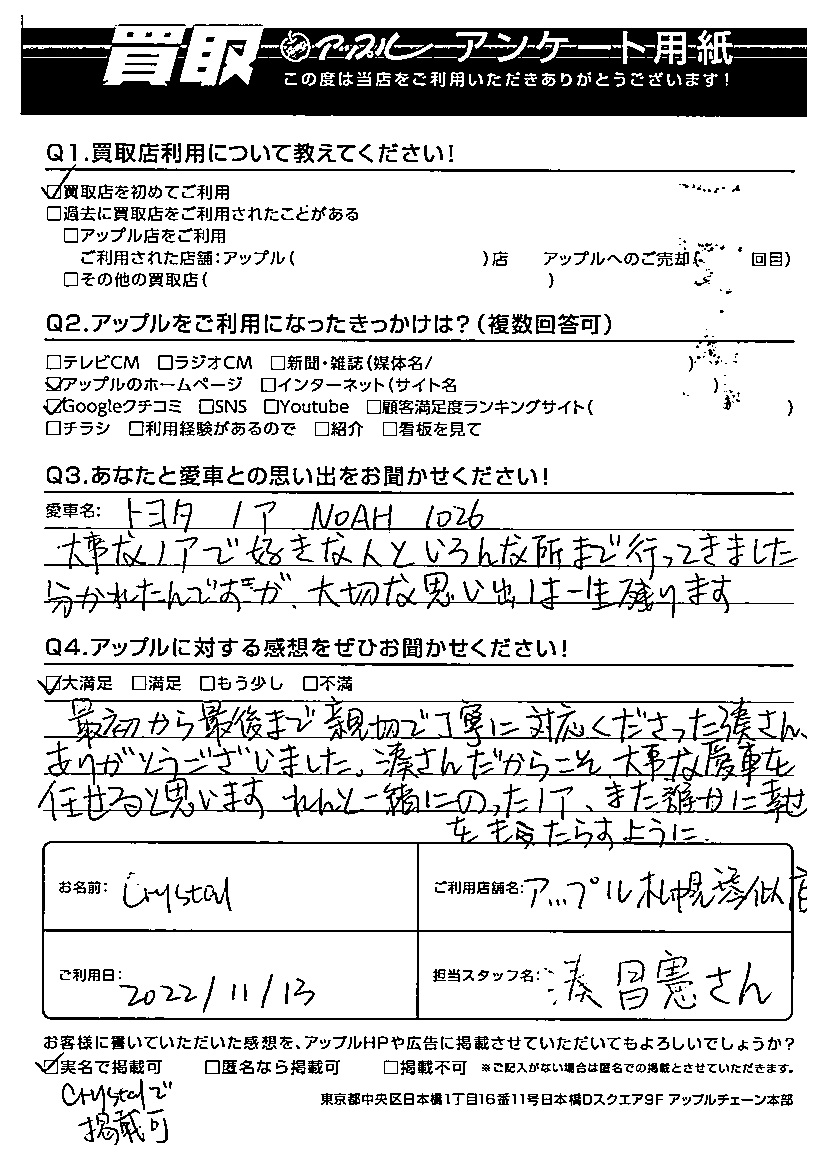 買取 アップル アンケート用紙
この度は当店をご利用いただきありがとうございます!
Q1.買取店利用について教えてください!
☑買取店を初めてご利用
□過去に買取店をご利用されたことがある
□アップル店をご利用
ご利用された店舗:アップル( )店 アップルへのご売却( 回目)
□その他の買取店( )
Q2.アップルをご利用になったきっかけは?(複数回答可)
□テレビCM □ラジオCM □新聞・雑誌(媒体名/ )
☑アップルのホームページ □インターネット(サイト名 )
☑Googleクチコミ □SNS □Youtube □顧客満足度ランキングサイト( )
□チラシ □利用経験があるので □紹介 □看板を見て
Q3.あなたと愛車との思い出をお聞かせください!
愛車名: トヨタ ノア NOAH 1026
大事なノアで好きな人といろんな所まで行ってきました
分かれたんですが、大切な思い出は一生残ります
Q4.アップルに対する感想をぜひお聞かせください!
☑大満足 □満足 □もう少し □不満
最初から最後まで親切で丁寧に対応くださった湊さん、
ありがとうございました。湊さんだからこそ大事な愛車を
任せると思います れんと一緒にのったノア、また誰かに幸せ
をもたらすように
お名前: Crystal
ご利用店舗名: アップル札幌琴似店
ご利用日: 2022/11/13
担当スタッフ名: 湊 昌憲さん
お客様に書いていただいた感想を、アップルHPや広告に掲載させていただいてもよろしいでしょうか?
☑実名で掲載可 □匿名なら掲載可 □掲載不可 ※ご記入がない場合は匿名での掲載とさせていただきます。
Crystalで
掲載可
東京都中央区日本橋1丁目16番11号日本橋Dスクエア9F アップルチェーン本部